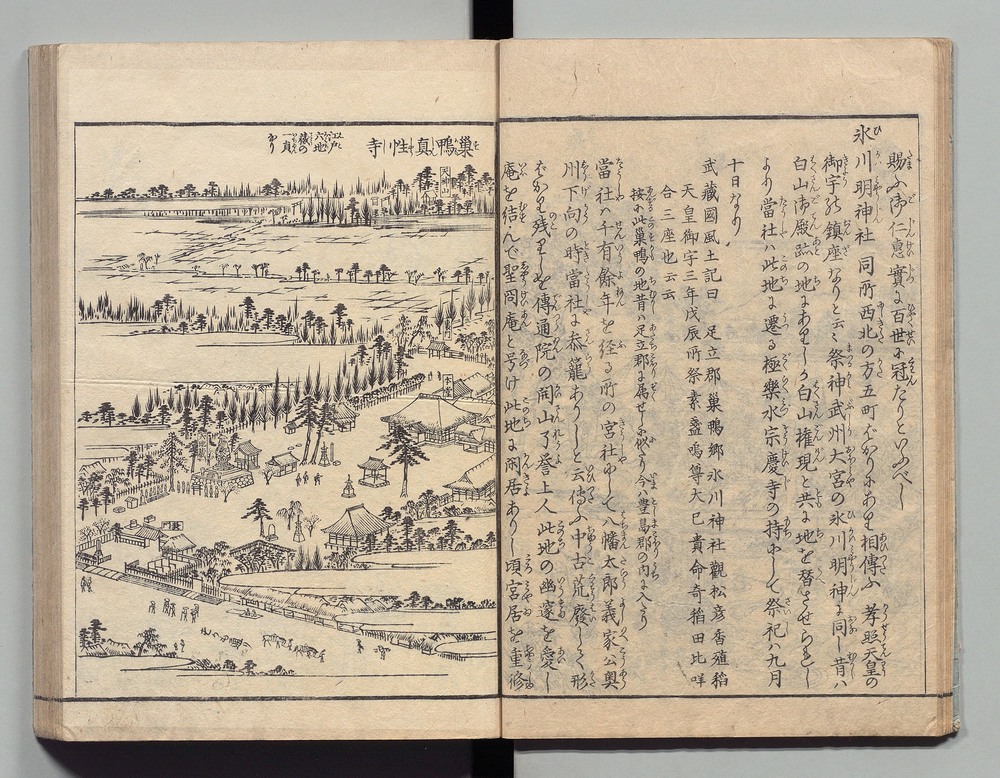 賜ふ御仁惠實に百世に冠たりといふべし
氷川明神社 同所西北の方五町ばかりにあり相傳ふ 孝照天皇の
御宇の鎮座なりと云々祭神武州大宮の氷川明神に同し昔ハ
白山御殿跡の地にありしか白山権現と共に地を替させられし
より當社ハ此地に遷る極樂水宗慶寺の持にして祭祀ハ九月
十日なり
武藏國風土記曰 足立郡巢鴨郷氷川神社觀松彦香殖稲
天皇御宇三年戊辰所祭素盞嗚尊大己貴命奇稲田比咩
合三座也云云
按に此巢鴨の地昔ハ足立郡に属せしか今ハ豊島郡の内に入たり
當社ハ千有餘年を径る所の宮社にして八幡太郎義家公奥
州下向の時當社に参籠ありしと云傳ふ中古荒廢して形
ばかり残りしを傳通院の開山了誉上人此地の幽邃を愛し
庵を結んで聖冏庵と号け此地に閑居ありし頃宮居を重修
巢鴨真性寺
江戸
六地
蔵の
一員
なり